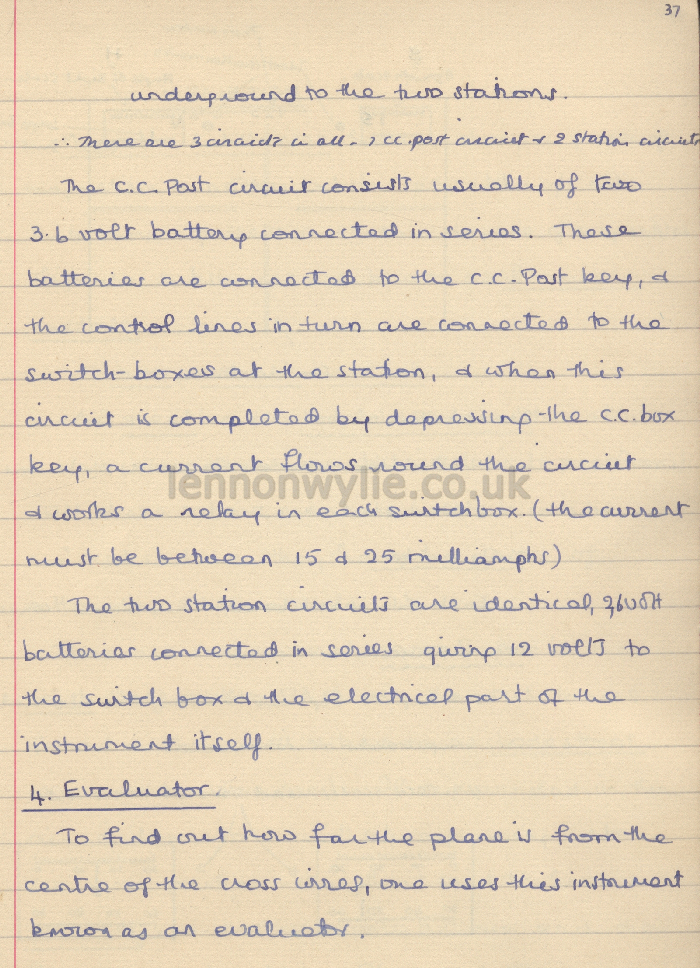 37
underground to the two stations.
∴ There are 3 circuits in all - 1 c.c. post circuit & 2 station circuits
The C.C. Post circuit consists usually of two
3.6 volt battery connected in series. These
batteries are connected to the C.C. Post key, &
the control lines in turn are connected to the
switch-boxes at the station, & when this
circuit is completed by depressing the C.C. box
key, a current flows round the circuit
lennonwylie.co.uk
& works a relay in each switchbox. (the current
must be between 15 & 25 milliamphs)
The two station circuits are identical, 2, 6 volt
batteries connected in series giving 12 volts to
the switch box & the electrical part of the
instrument itself.
4. Evaluator.
To find out how far the plane is from the
centre of the cross wires, one uses this instrument
known as an evaluator.